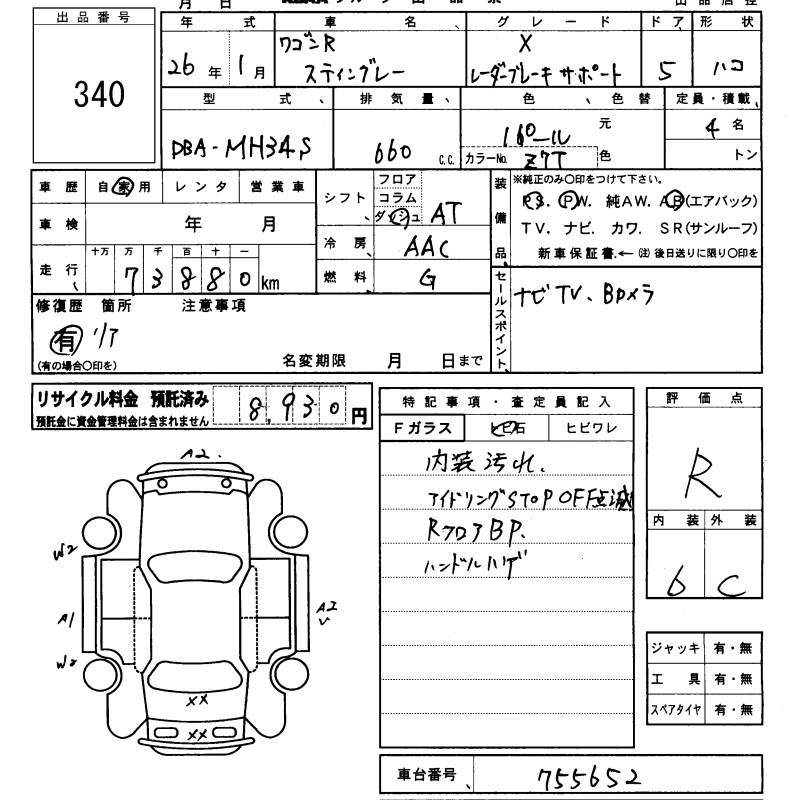 月 日
出品番号
340
年 式 車 名 グレード ドア 形 状
26年 1月 ワゴンR スティングレー X レーダーブレーキサポート 5 ハコ
型 式 排気量 色 色替 定員・積載
DBA-MH34S 660 c.c. パール 元 4名
カラーNo. Z7T 色 トン
車歴 自家用 レンタ 営業車
車検 年 月
十万 万 千 百 十 一
走行 7 3 8 8 0 km
シフト フロア コラム ダッシュ AT
冷房 AAC
燃料 G
装備品
※純正のみ〇印をつけて下さい。
P.S. P.W. 純AW. AB(エアバック)
TV. ナビ. カワ. SR(サンルーフ)
新車保証書.←(注)後日送りに限り〇印を
修復歴 箇所 注意事項
有 リア
(有の場合〇印を)
名変期限 月 日まで
セールスポイント
ナビTV、Bカメラ
リサイクル料金 預託済み
預託金に資金管理料金は含まれません
8,930円
特記事項・査定員記入
Fガラス 石 ヒビワレ
内装汚れ.
アイドリングSTOP OFF点滅
RフロアBP.
ハンドルハゲ
評価点
R
内装 外装
6 C
A2.
W2
A1
W2
A2
XX
XX
ジャッキ 有・無
工具 有・無
スペアタイヤ 有・無
車台番号 755652